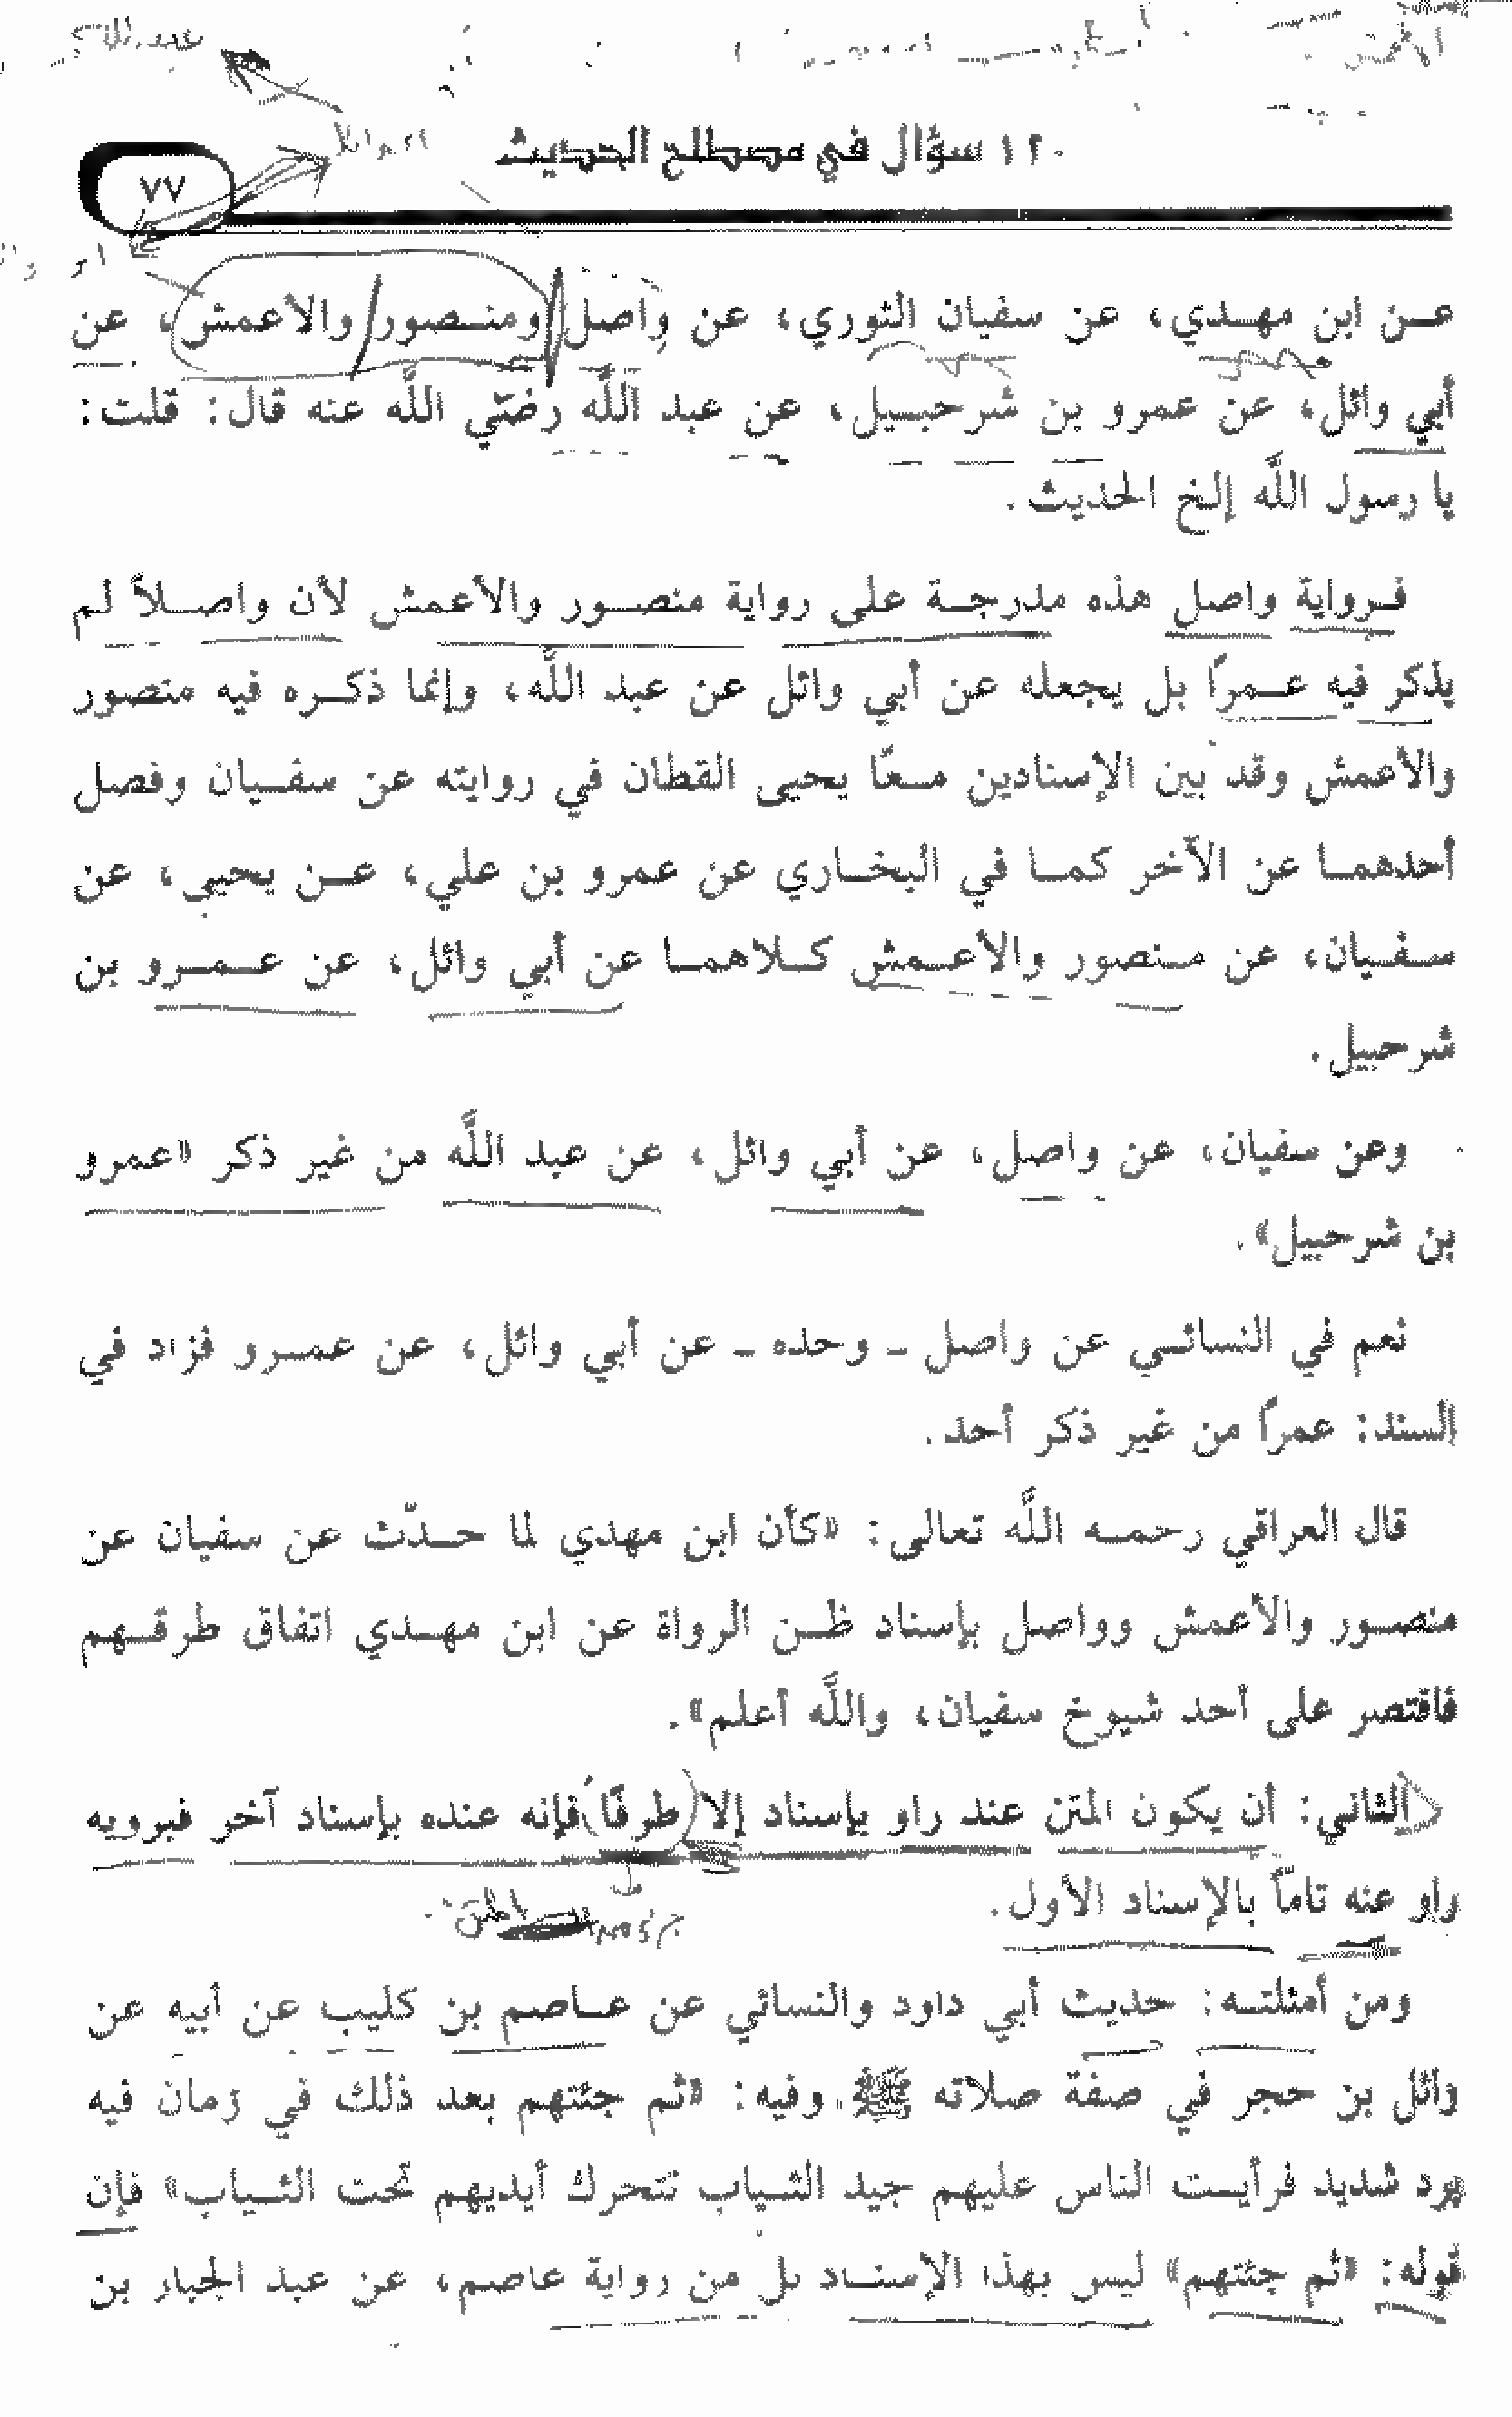 ١٢٠ سؤال في مصطلح الحديث
٧٧
عن ابن مهدي، عن سفيان الثوري، عن واصل ومنصور والأعمش، عن
أبي وائل، عن عمرو بن شرحبيل، عن عبد اللَّه رضي اللَّه عنه قال: قلت:
يا رسول اللَّه إلخ الحديث.
فرواية واصل هذه مدرجة على رواية منصور والأعمش لأن واصلاً لم
يذكر فيه عمرًا بل يجعله عن أبي وائل عن عبد اللَّه، وإنما ذكره فيه منصور
والأعمش وقد بين الإسنادين معًا يحيى القطان في روايته عن سفيان وفصل
أحدهما عن الآخر كما في البخاري عن عمرو بن علي، عن يحيى، عن
سفيان، عن منصور والأعمش كلاهما عن أبي وائل، عن عمرو بن
شرحبيل.
وعن سفيان، عن واصل، عن أبي وائل، عن عبد اللَّه من غير ذكر «عمرو
بن شرحبيل».
نعم في النسائي عن واصل - وحده - عن أبي وائل، عن عمرو فزاد في
السند: عمرًا من غير ذكر أحد.
قال العراقي رحمه اللَّه تعالى: «كأن ابن مهدي لما حدّث عن سفيان عن
منصور والأعمش وواصل بإسناد ظن الرواة عن ابن مهدي اتفاق طرقهم
فاقتصر على أحد شيوخ سفيان، واللَّه أعلم».
الثاني: أن يكون المتن عند راو بإسناد إلا طرفًا فإنه عنده بإسناد آخر فيرويه
راو عنه تامًا بالإسناد الأول.
المتن
ومن أمثلته: حديث أبي داود والنسائي عن عاصم بن كليب عن أبيه عن
وائل بن حجر في صفة صلاته ﷺ وفيه: «ثم جئتهم بعد ذلك في زمان فيه
برد شديد فرأيت الناس عليهم جيد الثياب تتحرك أيديهم تحت الثياب» فإن
قوله: «ثم جئتهم» ليس بهذا الإسناد بل من رواية عاصم، عن عبد الجبار بن